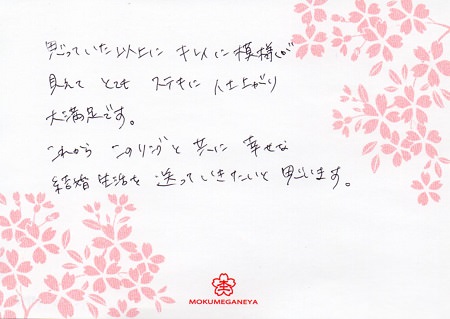 思っていた以上に キレイに模様が
見えて とても ステキに 仕上がり
大満足です。
これから このリングと共に 幸せな
結婚生活を 送っていきたいと 思います。
MOKUMEGANEYA